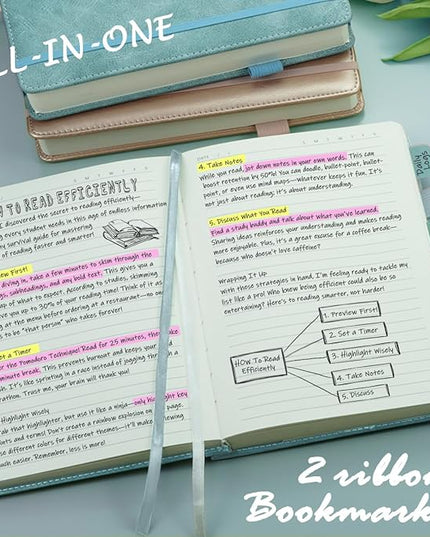 LL-IN-ONE
S M T W T F S
W TO READ EFFICIENTLY
discovered the secret to reading efficiently—
every student needs in this age of information
my survival guide for mastering
of reading faster and smarter!
view First!
diving in, take a few minutes to skim through the
gs, subheadings, and any bold text. This gives you a
of what to expect. According to studies, skimming
ve you up to 30% of your reading time! Think of it as
g at the menu before ordering at a restaurant—no one
to be "that person" who takes forever!
et a Timer
the Pomodoro Technique! Read for 25 minutes, then take
minute break. This prevents burnout and keeps your
It's like sprinting in a race instead of jogging through a
rathon. Trust me, your brain will thank you!
Highlight Wisely
rab that highlighter, but use it like a ninja—only highlight key
ints and terms! Don't create a rainbow explosion on page.
se different colors for different themes—it'll make reviewing
uch easier. Remember, less is more!
DATE
S M T W T F S
4. Take Notes
While you read, jot down notes in your own words. This can
boost retention by 50%! You can doodle, bullet-point, bullet-
point, or even use mind maps—whatever keeps it fun. It's
not just about reading; it's about understanding.
5. Discuss What You Read
Find a study buddy and talk about what you've learned.
Sharing ideas reinforces your understanding and makes reading
more enjoyable. Plus, it's a great excuse for a coffee break—
because who doesn't love caffeine?
Wrapping It Up
With these strategies in hand, I'm feeling ready to tackle my
list like a pro! Who knew being efficient could also be so
entertaining? Here's to reading smarter, not harder!
How To Read
Efficiently
1. Preview First!
2. Set a Timer
3. Highlight Wisely
4. Take Notes
5. Discuss
2 ribbo
Bookmark